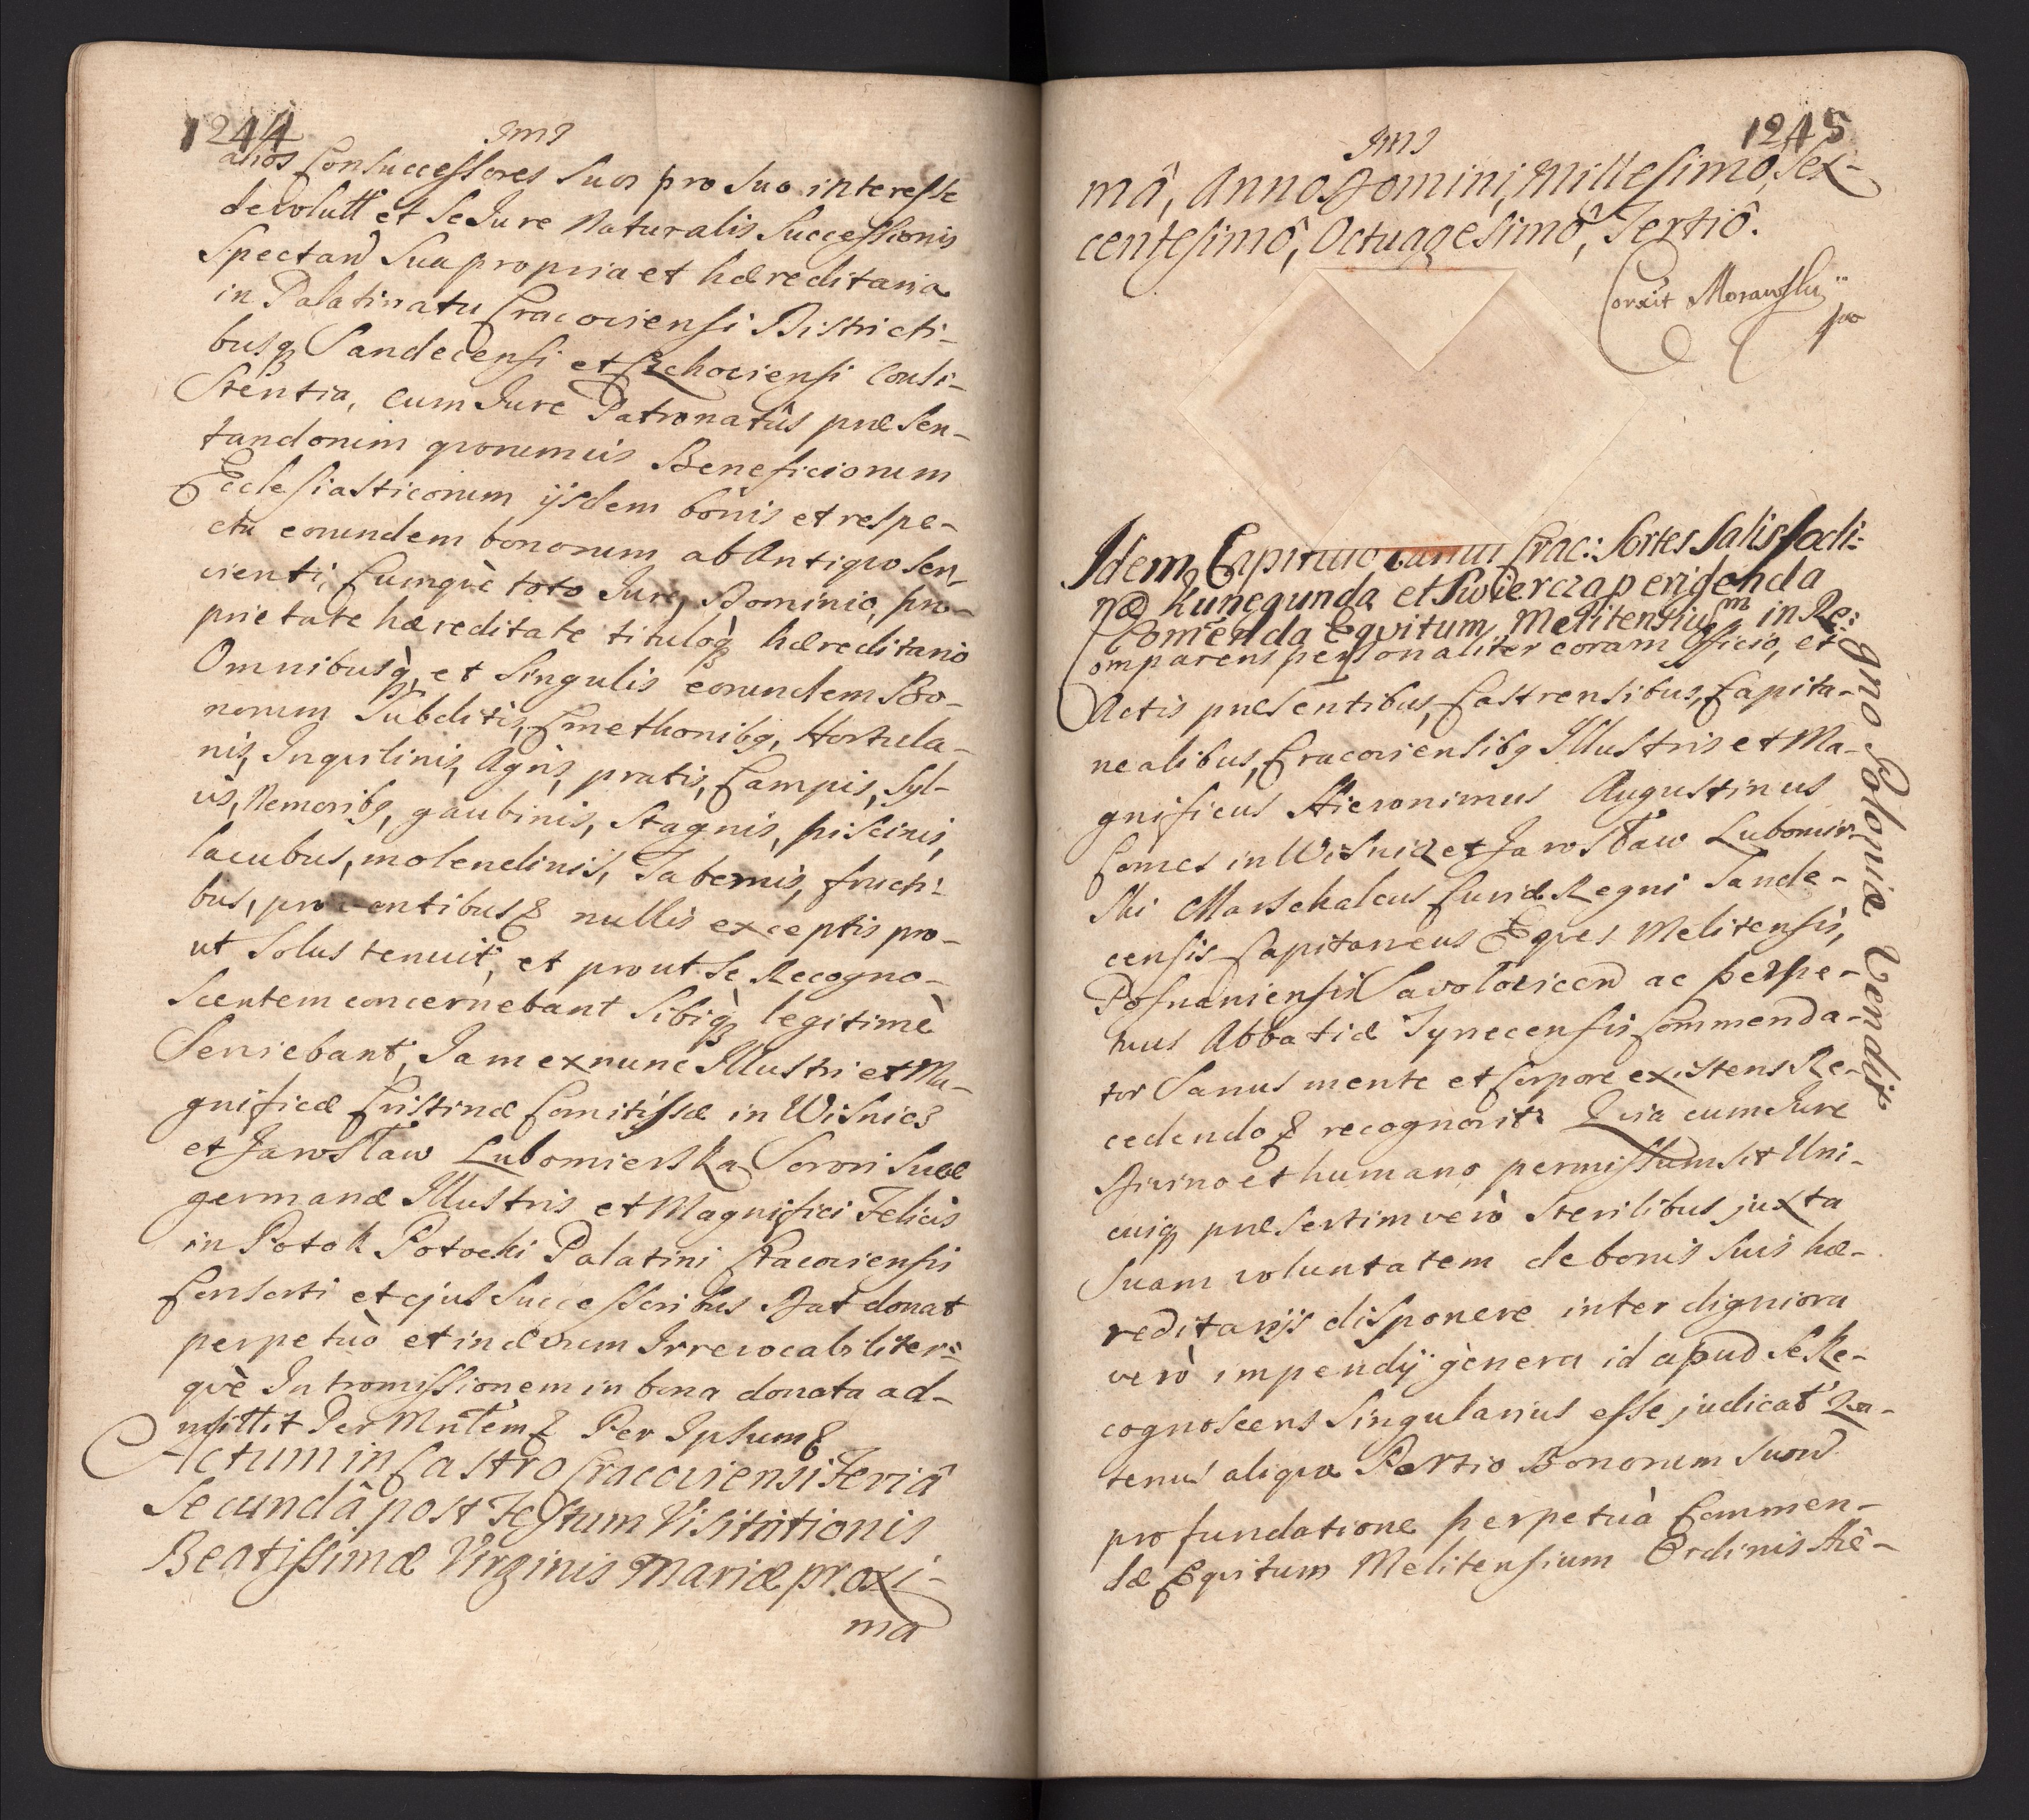 1244
Jms
alios Consuccessores Suos pro Suo interesse
devolutt et Se Jure Naturalis Successionis
Spectand Sua propria et hæreditaria
in Palatinatu Cracoviensi Districti-
busq Sandecensi et Czchoviensi Consi-
stentia, cum Jure Patronatûs præsen-
tandorum quorumvis Beneficiorum
Ecclesiasticorum ijsdem bonis et respe-
ctu eorundem bonorum ab Antiquo Ser-
vienti, Cumquè toto Jure, Dominio, pro-
prietate hæreditate tituloq hæreditario
Omnibusq, et Singulis eorundem Bo-
norum Subditis, Cmethonibq, Hortula-
nis, Inquilinis, Agris, pratis, Campis, Syl-
vis, Nemoribq, gaubinis, Stagnis, piscinis,
lacubus, molendinis, Tabernis, fructi-
bus, proventibus & nullis exceptis pro-
ut Solus tenuit, et prout Se Recogno-
scentem concernebant Sibiq legitimè
Serviebant, Jam ex nunc Illustri et Ma-
gnificæ Cristinæ Comitissæ in Wisnicz
et Jarosław Lubomierska Sorori Suæ
germanæ Illustris et Magnifici Felicis
in Potok Potocki Palatini Cracoviensis
Consorti et ejus Successoribus Dat donat
perpetuò et in ævum Irrevocabiliter=
què Intromissionem in bona donata ad-
mittit Per Mntem & Per Ipsum &
Actum in Castro Cracoviensi Feriâ
Secundâ post Festum Visitationis
Beatissimæ Virginis Mariæ proxi-
ma
1245
Jms
mâ, Anno Domini, Millesimo, Sex-
centesimô, Octuagesimô, Tertiô.
Corxit Morawski
Idem Capitulo Crac: Sortes Salisfodi:
næ Kunegunda et Swierczap erigenda
Comenda Eqvitum Melitensium in Re:
gno Poloniæ Vendit
Comparens personaliter coram Officio, et
Actis præsentibus, Castrensibus, Capita-
nealibus, Cracoviensibq Illustris et Ma-
gnificus Hieronimus Augustinus
Comes in Wisnicz et Jarosław Lubomir-
ski Marschalcus Curiæ Regni Sande-
censis Capitaneus Eqves Melitensis,
Posnaniensis ac perpe-
tuus Abbatiæ Tynecensis Commenda-
tor Sanus mente et Corpore existens Re-
cedendo & recognovit: Quia cum Jure
Divino et humano permissum sit Uni-
cuiq præsertim verò Sterilibus juxta
Suam voluntatem de bonis Suis hæ-
reditarijs disponere inter digniora
verò impendij genera id apud Se Re-
cognoscens Singularius esse judicat Qua-
tenus aliqua Portio Bonorum Suord
pro fundatione perpetuà Commen-
dæ Eqvitum Melitensium Ordinis Hie-